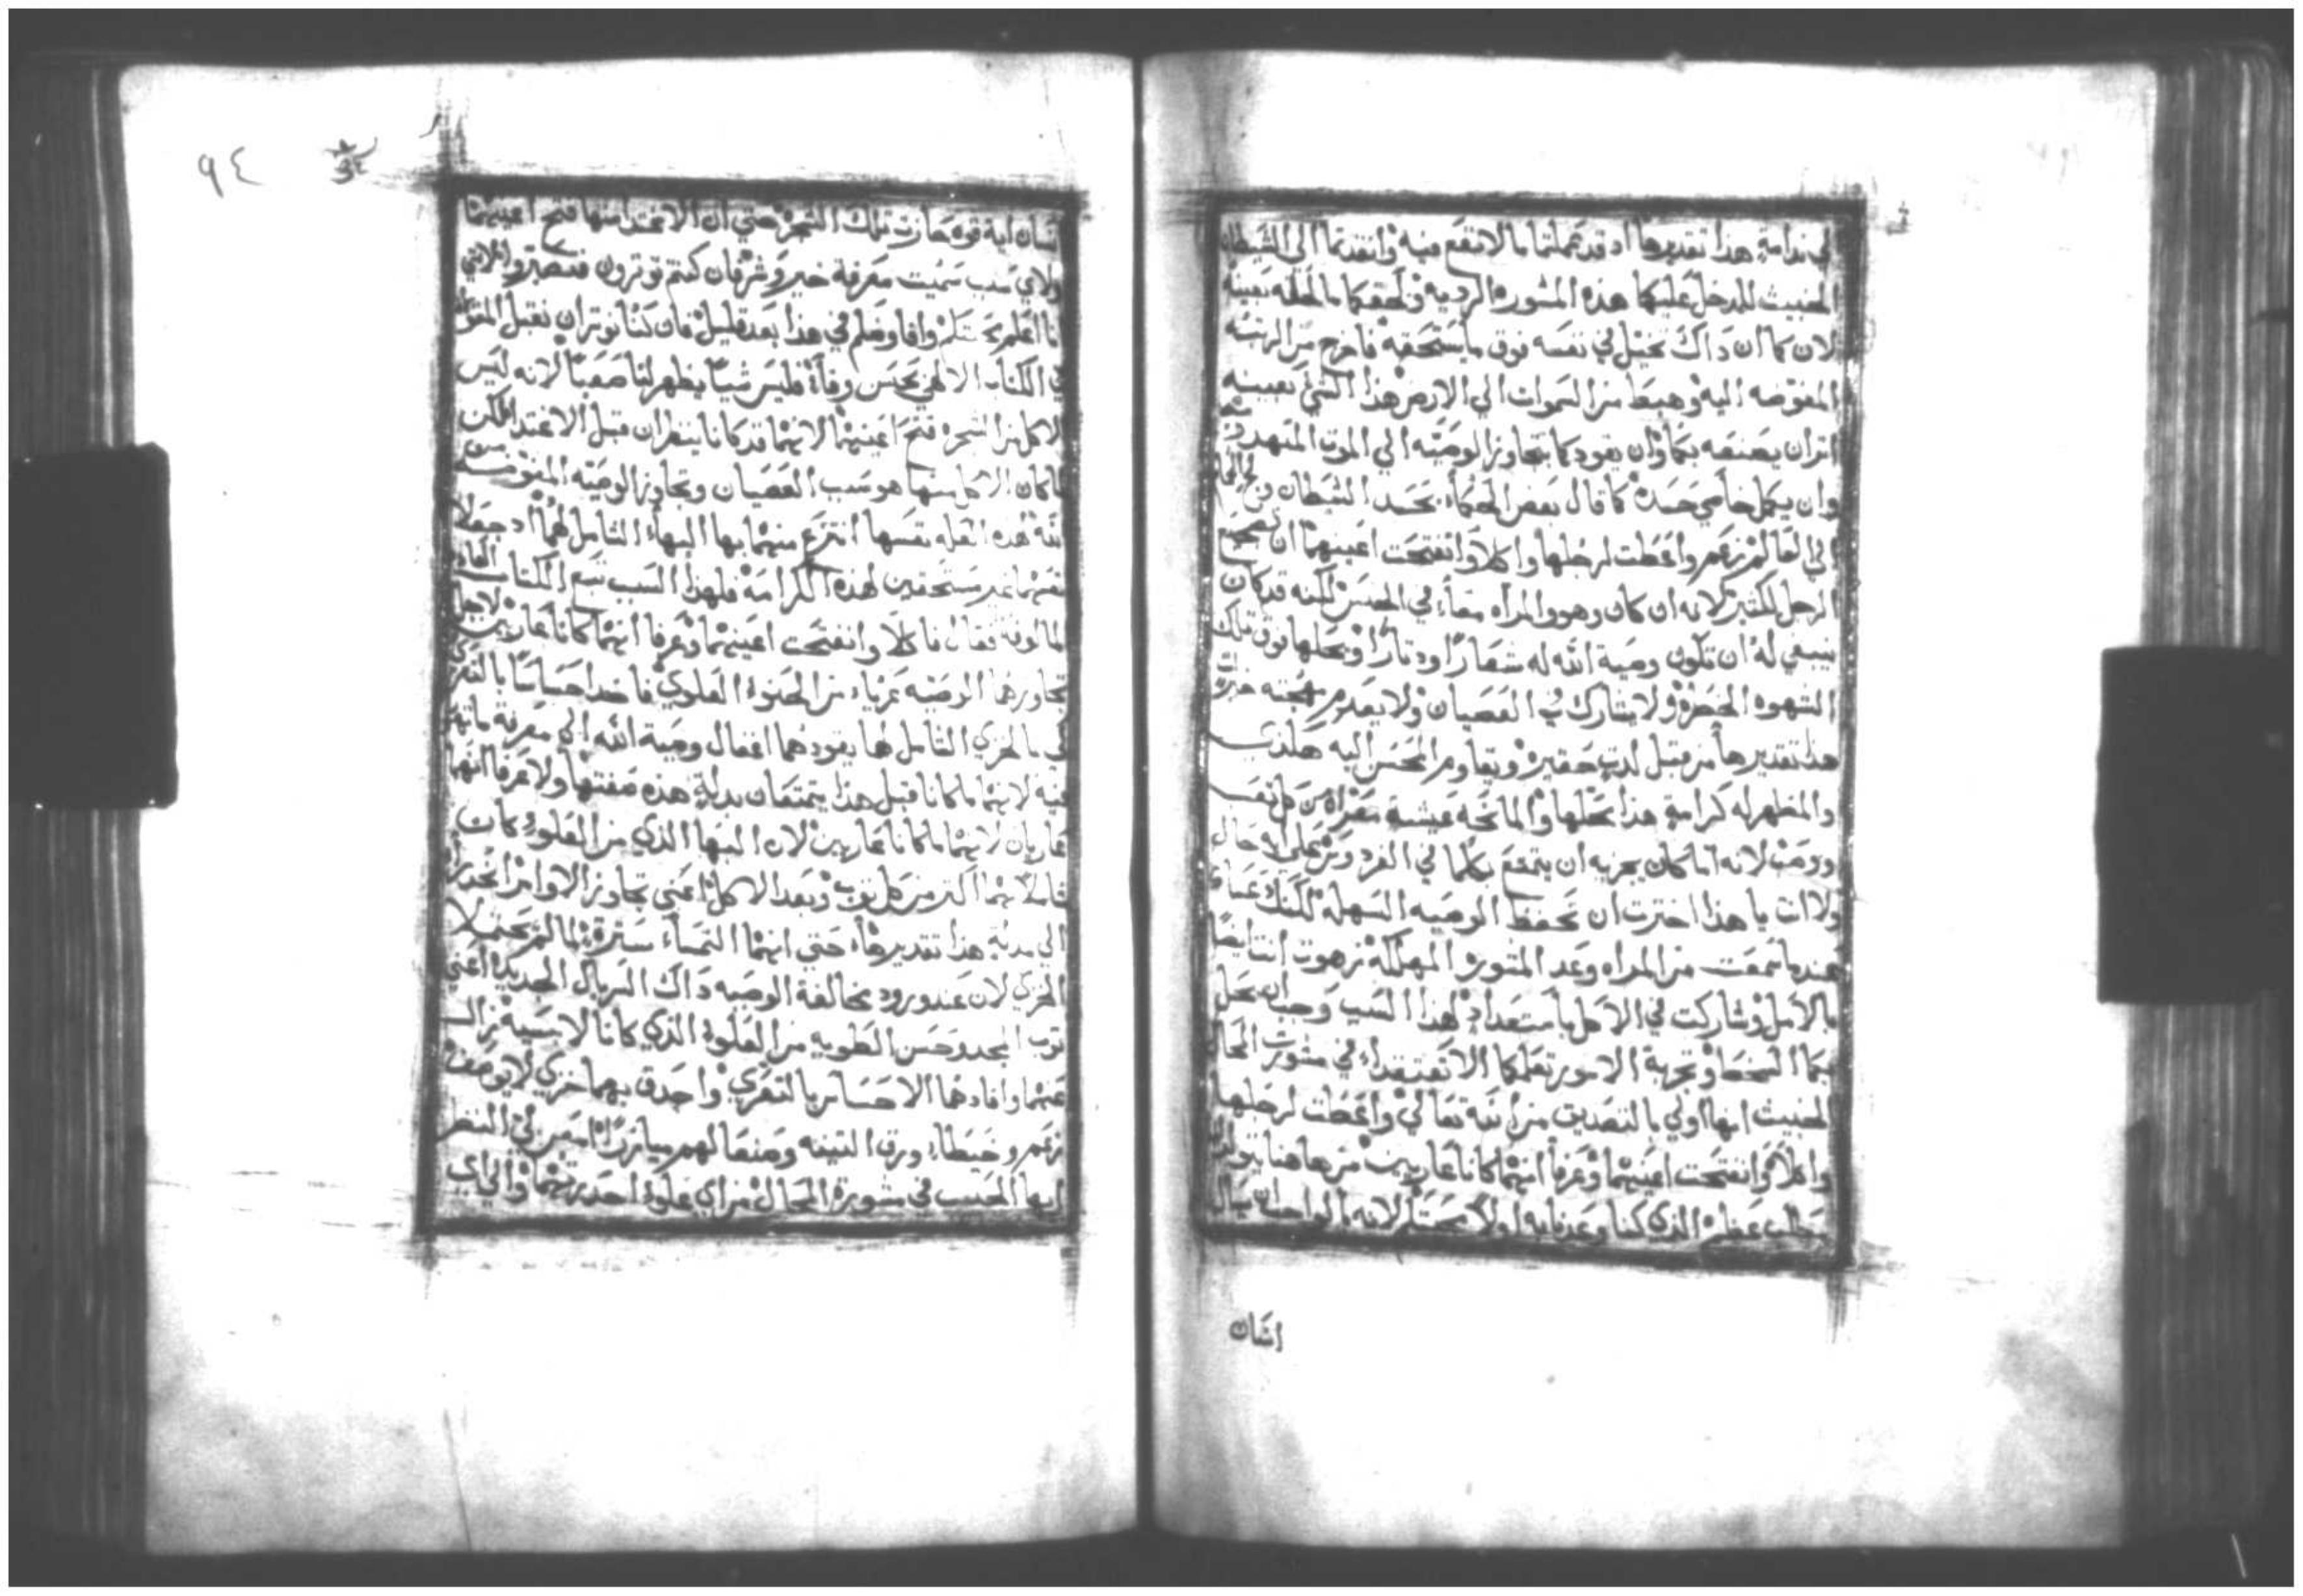 في ندامةِ هذا تقديرها اد قد عملتما ما لا تقع فيه وانقدتما الي الشيطان
الخبيث المدخل عليكما هذه المشوره الرديه ولحقكما ما لحقه بعينه
لان كما ان داك تخيل في نفسه فوق ما يستحقه فاخرج من الرتبه
المفوضه اليه وهبط من السموات الي الارض هذا الشي بعينه
اتران يصنعه بكما وان يقودكما بتجاوز الوصيّه الي الموت
وان يكمل خاصي حسده كما قال بعض الحكمأ بحسد الشيطان
الي العالم زعم واعطت لرجلها واكلا وانفتحت اعينهما ان
الرجل لكثيره لانه ان كان وهو والمرأه معاً في الجنس لكنه قد كان
ينبغي له ان تكون وصية الله له شعاراً ودتاراً ويجعلها فوق تلك
الشهوه المحضره ولا يشارك في العصيان ولا يعدم مهجته خيرات
هذا تقديرها من قبل لدةٍ حقيره ويقاوم المحسن اليه هكذى
والمظهر له كرامةٍ هذا محلها والمانحه عيشة معراه من كل تعب
ووصب لانه اما كان يجزيه ان يتمتع بكلما في الفردوس علي اي حال
ولاانت يا هذا اخترت ان تحفظ الوصيه السهله لكنك عساك
عندما سمعت من المراه وعد المشوره المهلكه زهوت انت ايضاً
بالامل وشاركت في الاكل باستعدادٍ لهدا السبب وجبان يحل
بكما السخط وتجربة الامور تعلمكما الا تعتقدا في مشورات المحال
الخبيث انها اولي بالتصديق من الله تعالي واعطت لرجلها
واكلا وانفتحت اعينهما وعرفا انهما كانا عاريين من هاهنا يتولد
مطلب عظيم الذي كنا وعدنا به اولاً محبتكم لانه بالواجب ان يسال
اتسان
اتسان اية قوه حازت تلك الشجره حتي ان الاغتدا منها فتح اعينهما
ولاي سبب سميت معرفة خير وشر فان كنتم توترون فتصبروا فلانني
انا اعلم محبتكم وافاوضكم في هذا بعد قليل فان كنا نوتران نقبل المقول
في الكتاب الالهي بحسن وفاة فليس شياً يظهر لنا صعباً لانه ليس
الاكل من الشجره فتح اعينهما لانهما قد كانا ينظران قبل الاغتدا لكن
لما كان الاكل منها هو سبب العصيان وتجاوز الوصيّه المفوضه من
الله هذه العله نفسها انتزع منهما بها البهاء الشامل لهما اد جعلا
نفسهما غير مستحقين لهذه الكرامة فلهذا السبب تتبع الكتاب العاده
المالوفه فقال فاكلا وانفتحت اعينهما وعرفا انهما كانا عاريين لاجل
تجاوزهما الوصيّه عرياء من الحنوا العلوي فاخدا احساساً بالتعري
لكي بالخزي الشامل لهما يقودهما اغفال وصية الله الي معرفة ما
فيه لانهما ما كانا قبل هذا يتمتعان بدالةٍ هذه صفتها ولا عرفا انهما
عاريان لانهما ما كانا عاريين لان البها الذي من العلو كان
شاملاً لهما اكتر من كل توب وبعد الاكل اعني تجاوز الاوامر انحدرا
الي مدلةٍ هذا تقديرها حتي انهما التمسا سترةً لما لم يحتملا
الخزي لان عند ورود مخالفة الوصيه داك السربال الجديد اعني
توب المجد وحسن الطويه من العلو الذي كانا لابسيه زال
عنهما وافادهما الاحساس بالتعري واحدق بهما خزي لا يوصف
زعم وخيطاء ورق التينه وصنعا لهم ميازراً امعن لي النظر
ايها الحبيب في مشورة المحال من اي علوٍ احدرتهما والي اي
٩٤